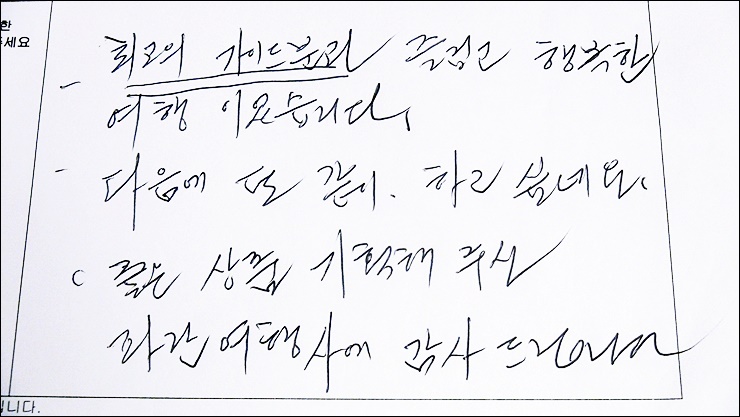 한
주세요
- 최고의 가이드분과 즐겁고 행복한
여행 이었습니다.
- 다음에 또 같이. 하고 싶네요.
좋은 상품 기획해 주신
파란여행사에 감사드립니다
입니다.